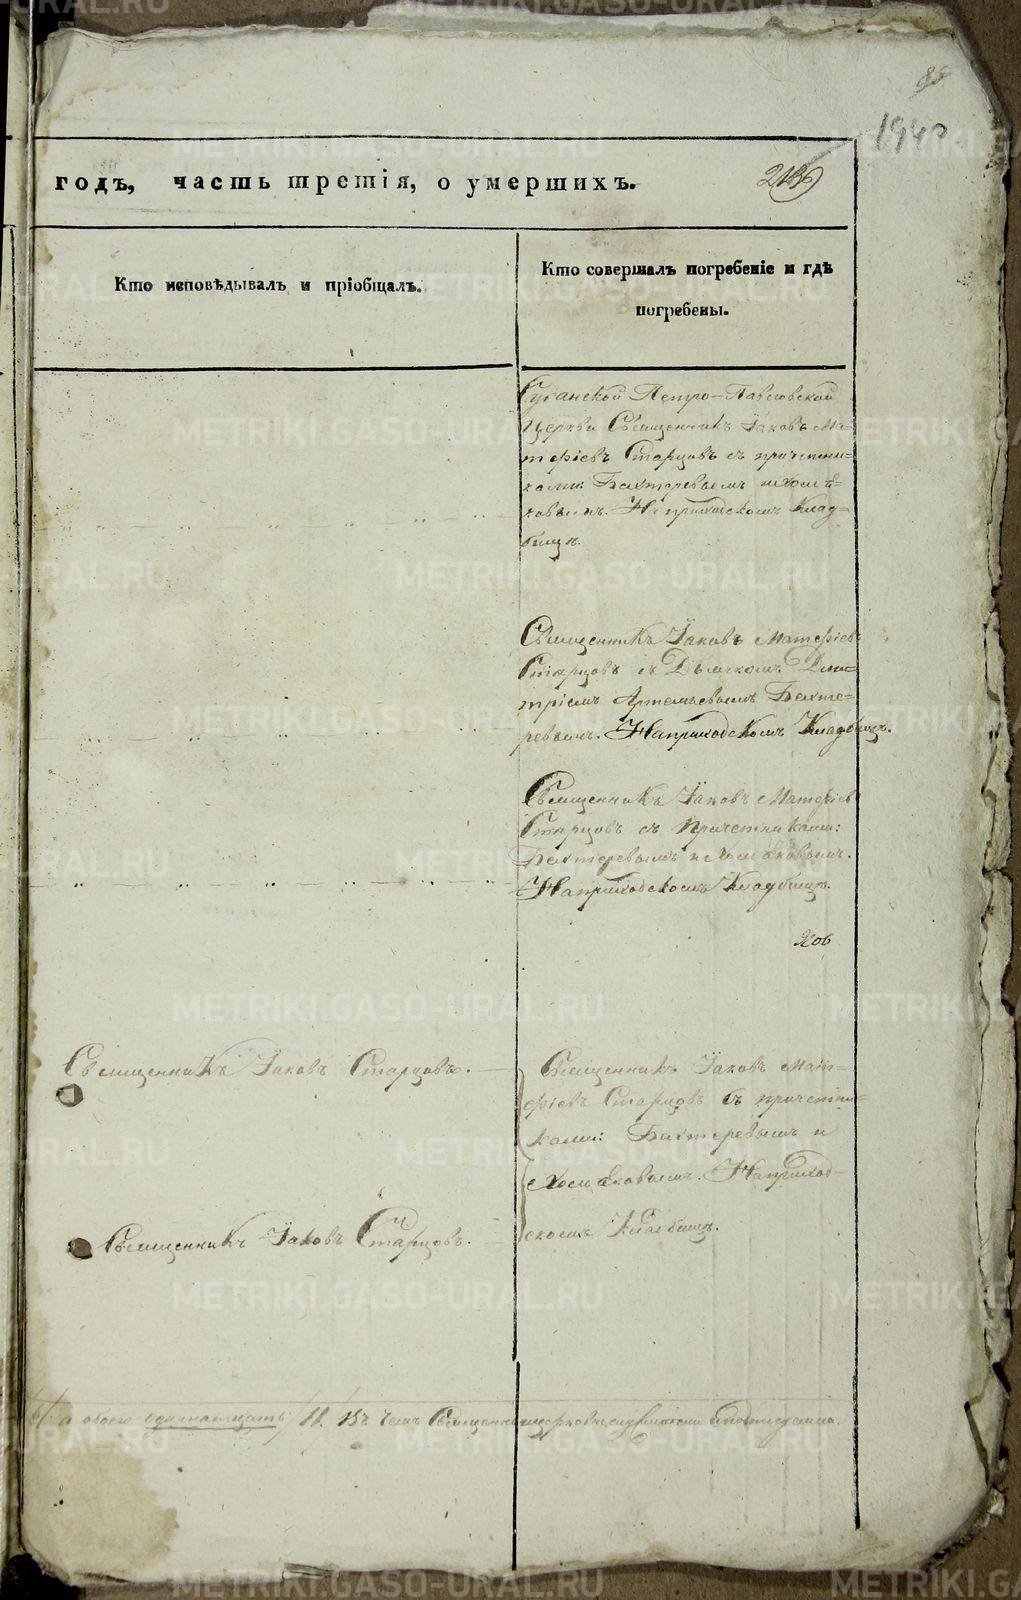 85
1940
годъ, часть третія, о умершихъ.
Кто исповѣдывалъ и пріобщалъ.
Кто совершалъ погребеніе и гдѣ
погребены.
Петро-Павловской
Церкви Священникъ Іаковъ Ма-
тфіевъ Старцовъ съ причетни-
ками: Бехтеревымъ и Хомя-
ковымъ. На приходскомъ Клад-
бищѣ.
Священникъ Іаковъ Матфіевъ
Старцовъ съ Дьячкомъ Дми-
тріемъ Артемьевымъ Бехте-
ревымъ. На приходскомъ Кладбищѣ.
Священникъ Іаковъ Матфіевъ
Старцовъ съ Причетниками:
Бехтеревымъ и Хомяковымъ.
На приходскомъ Кладбищѣ.
206
Священникъ Іаковъ Старцовъ.
Священникъ Іаковъ Мат-
фіевъ Старцовъ съ причетни-
ками: Бехтеревымъ и
Хомяковымъ. На приход-
скомъ Кладбищѣ.
Священникъ Іаковъ Старцовъ.
а обоего одиннатцать /11/ въ чемъ Священно и церковнослужители подписуемся.
METRIKI.GASO-URAL.RU